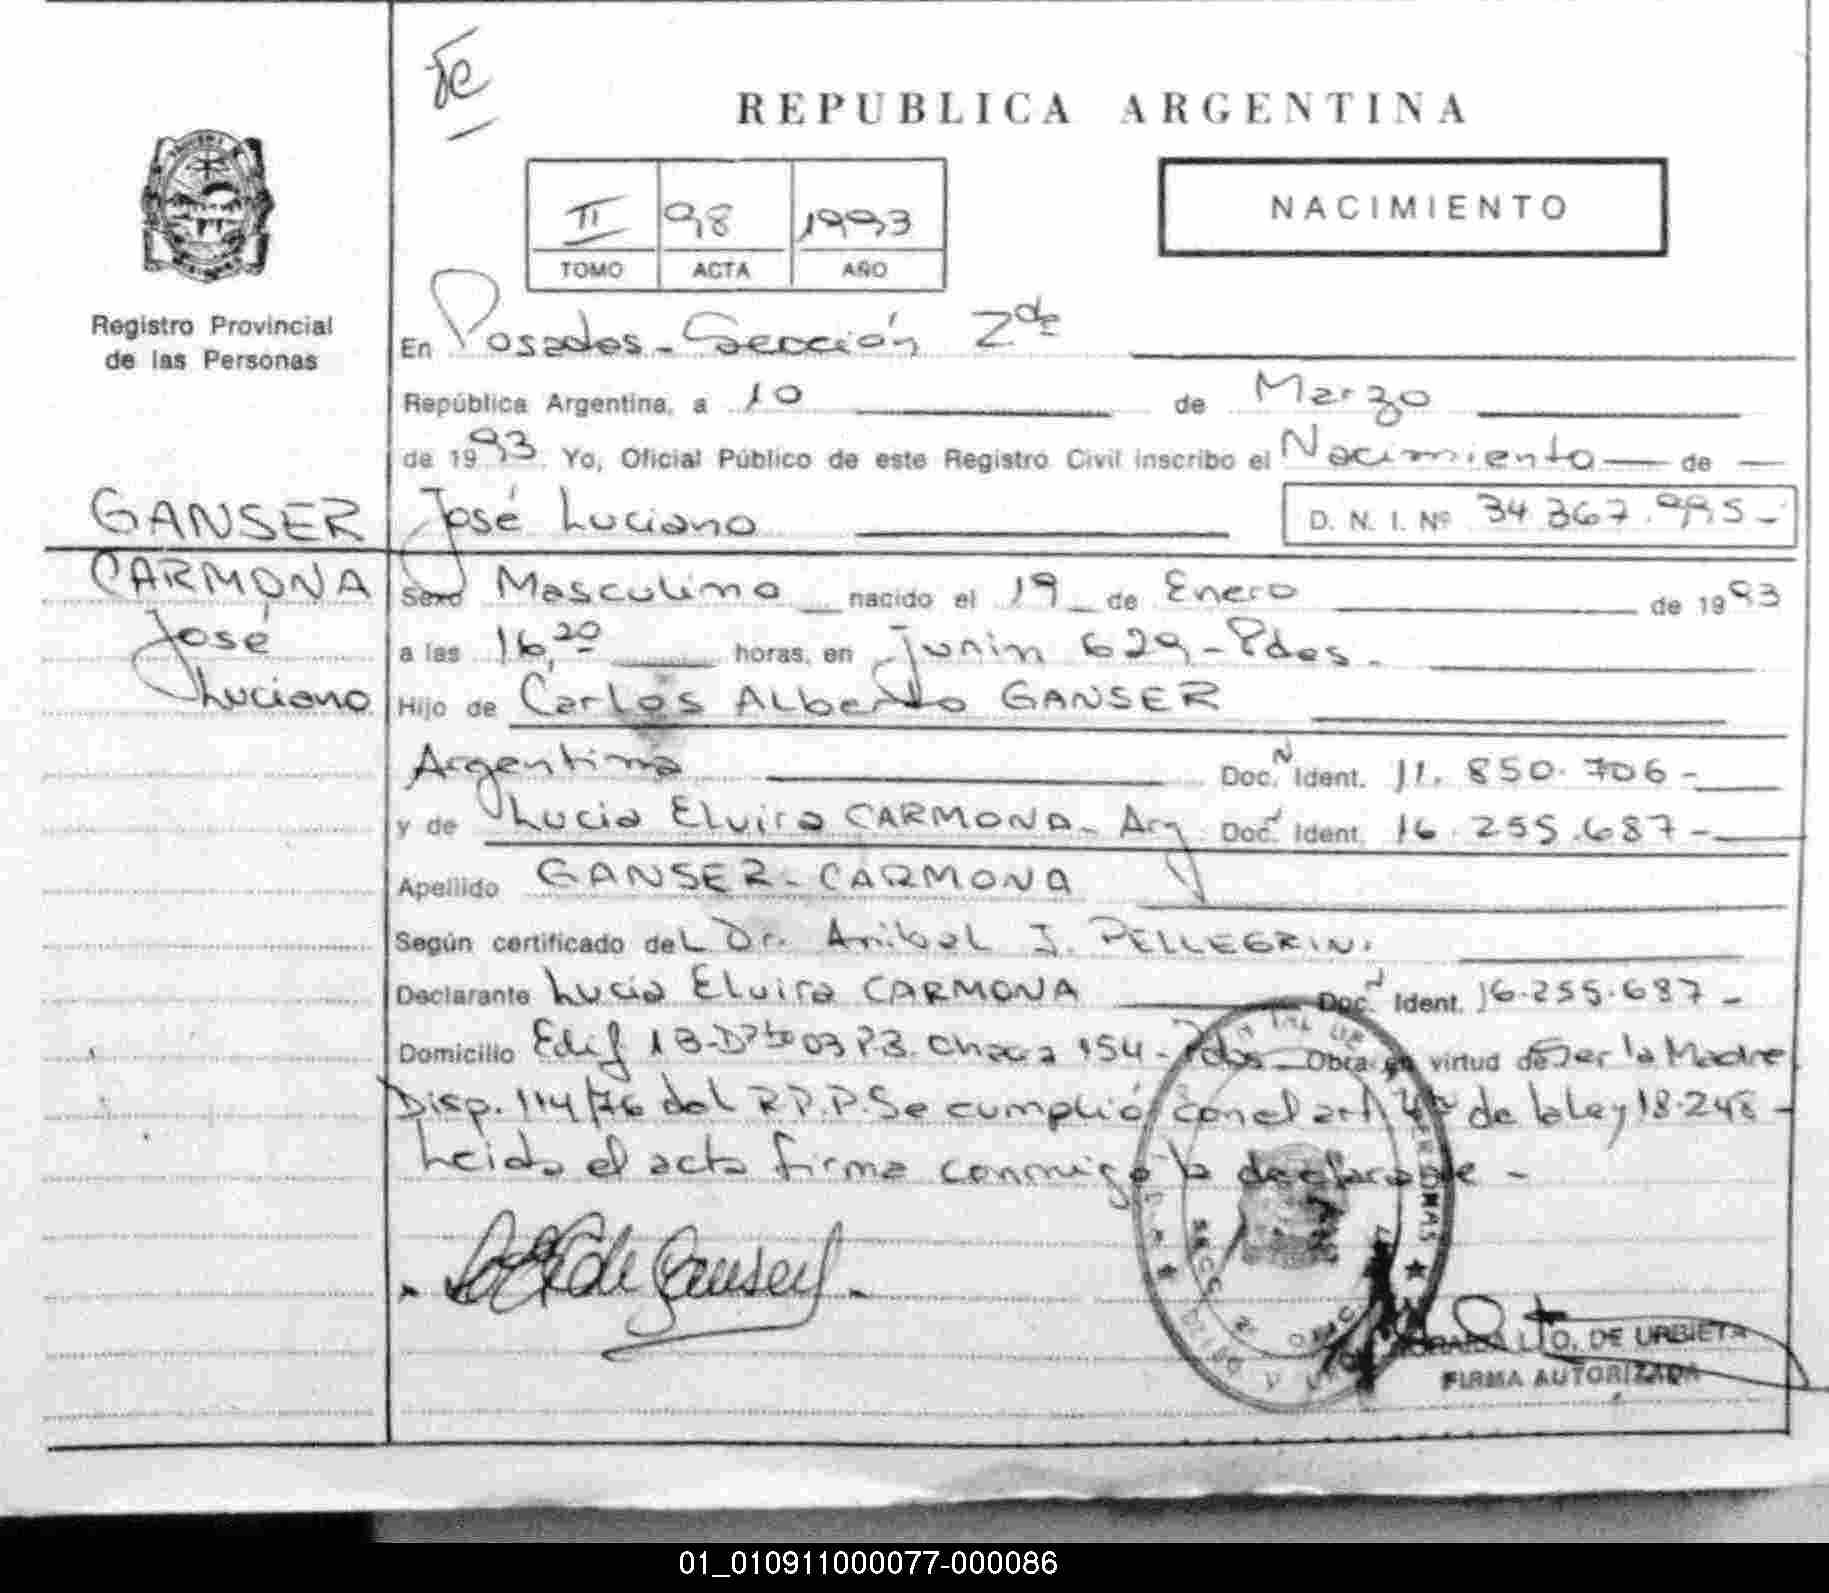 REPUBLICA ARGENTINA
II 98 1993
TOMO ACTA AÑO
NACIMIENTO
Registro Provincial
de las Personas
GANSER
CARMONA
José
Luciano
En Posadas - Sección 2da
República Argentina, a 10 de Marzo
de 1993. Yo, Oficial Público de este Registro Civil inscribo el Nacimiento de
José Luciano D. N. I. Nº 34.367.995-
Sexo Masculino nacido el 19 de Enero de 1993
a las 16,20 horas, en Junin 629 - Pdas.
Hijo de Carlos Alberto GANSER
Argentina Doc. N Ident. 11.850.706-
y de Lucia Elvira CARMONA - Arg Doc. Ident. 16.255.687-
Apellido GANSER - CARMONA
Según certificado del Dr. Anibal J. PELLEGRINI
Declarante Lucia Elvira CARMONA Doc. Ident. 16.255.687-
Domicilio Edif 13-Dpto 03 P.B. Chacra 154 - Pdas Obra en virtud de Ser la Madre
Disp. 114/76 del R.P.P. Se cumplió con el art 4to de la Ley 18.248-
Leida el acta firma conmigo la declarante -
DE URBIETA
FIRMA AUTORIZADA
01_010911000077-000086